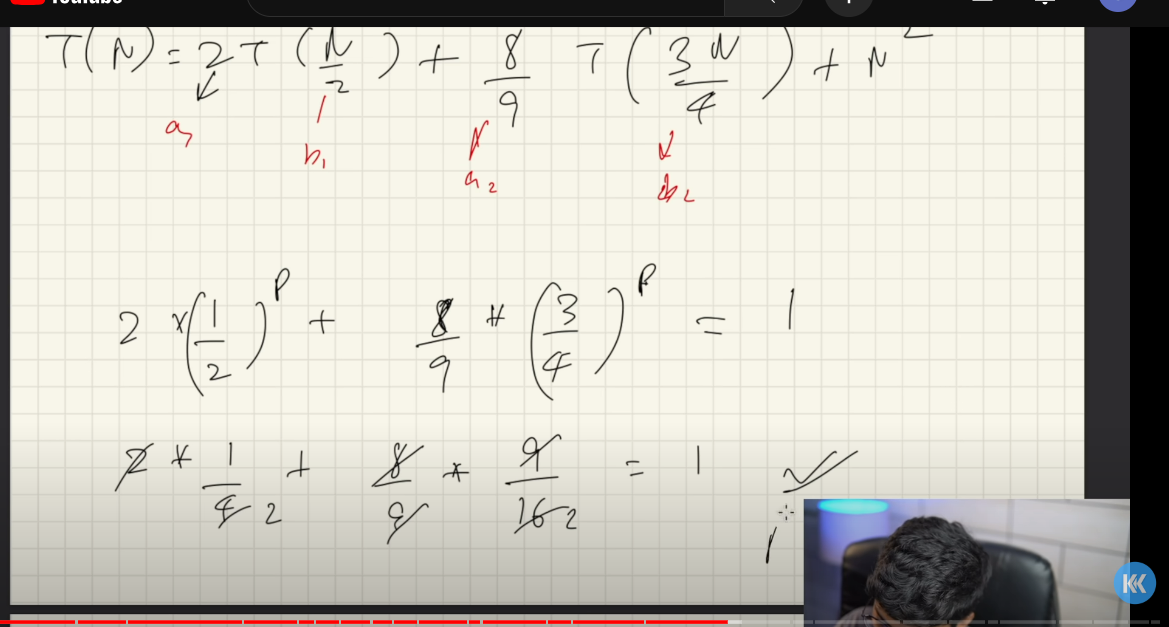 YouTube
T(N) = 2 T (N/2) + 8/9 T (3N/4) + N²
a₁ b₁ a₂ b₂
2 * (1/2)^P + 8/9 * (3/4)^P = 1
2 * 1/4 2 + 8/9 * 9/16 2 = 1 ✓